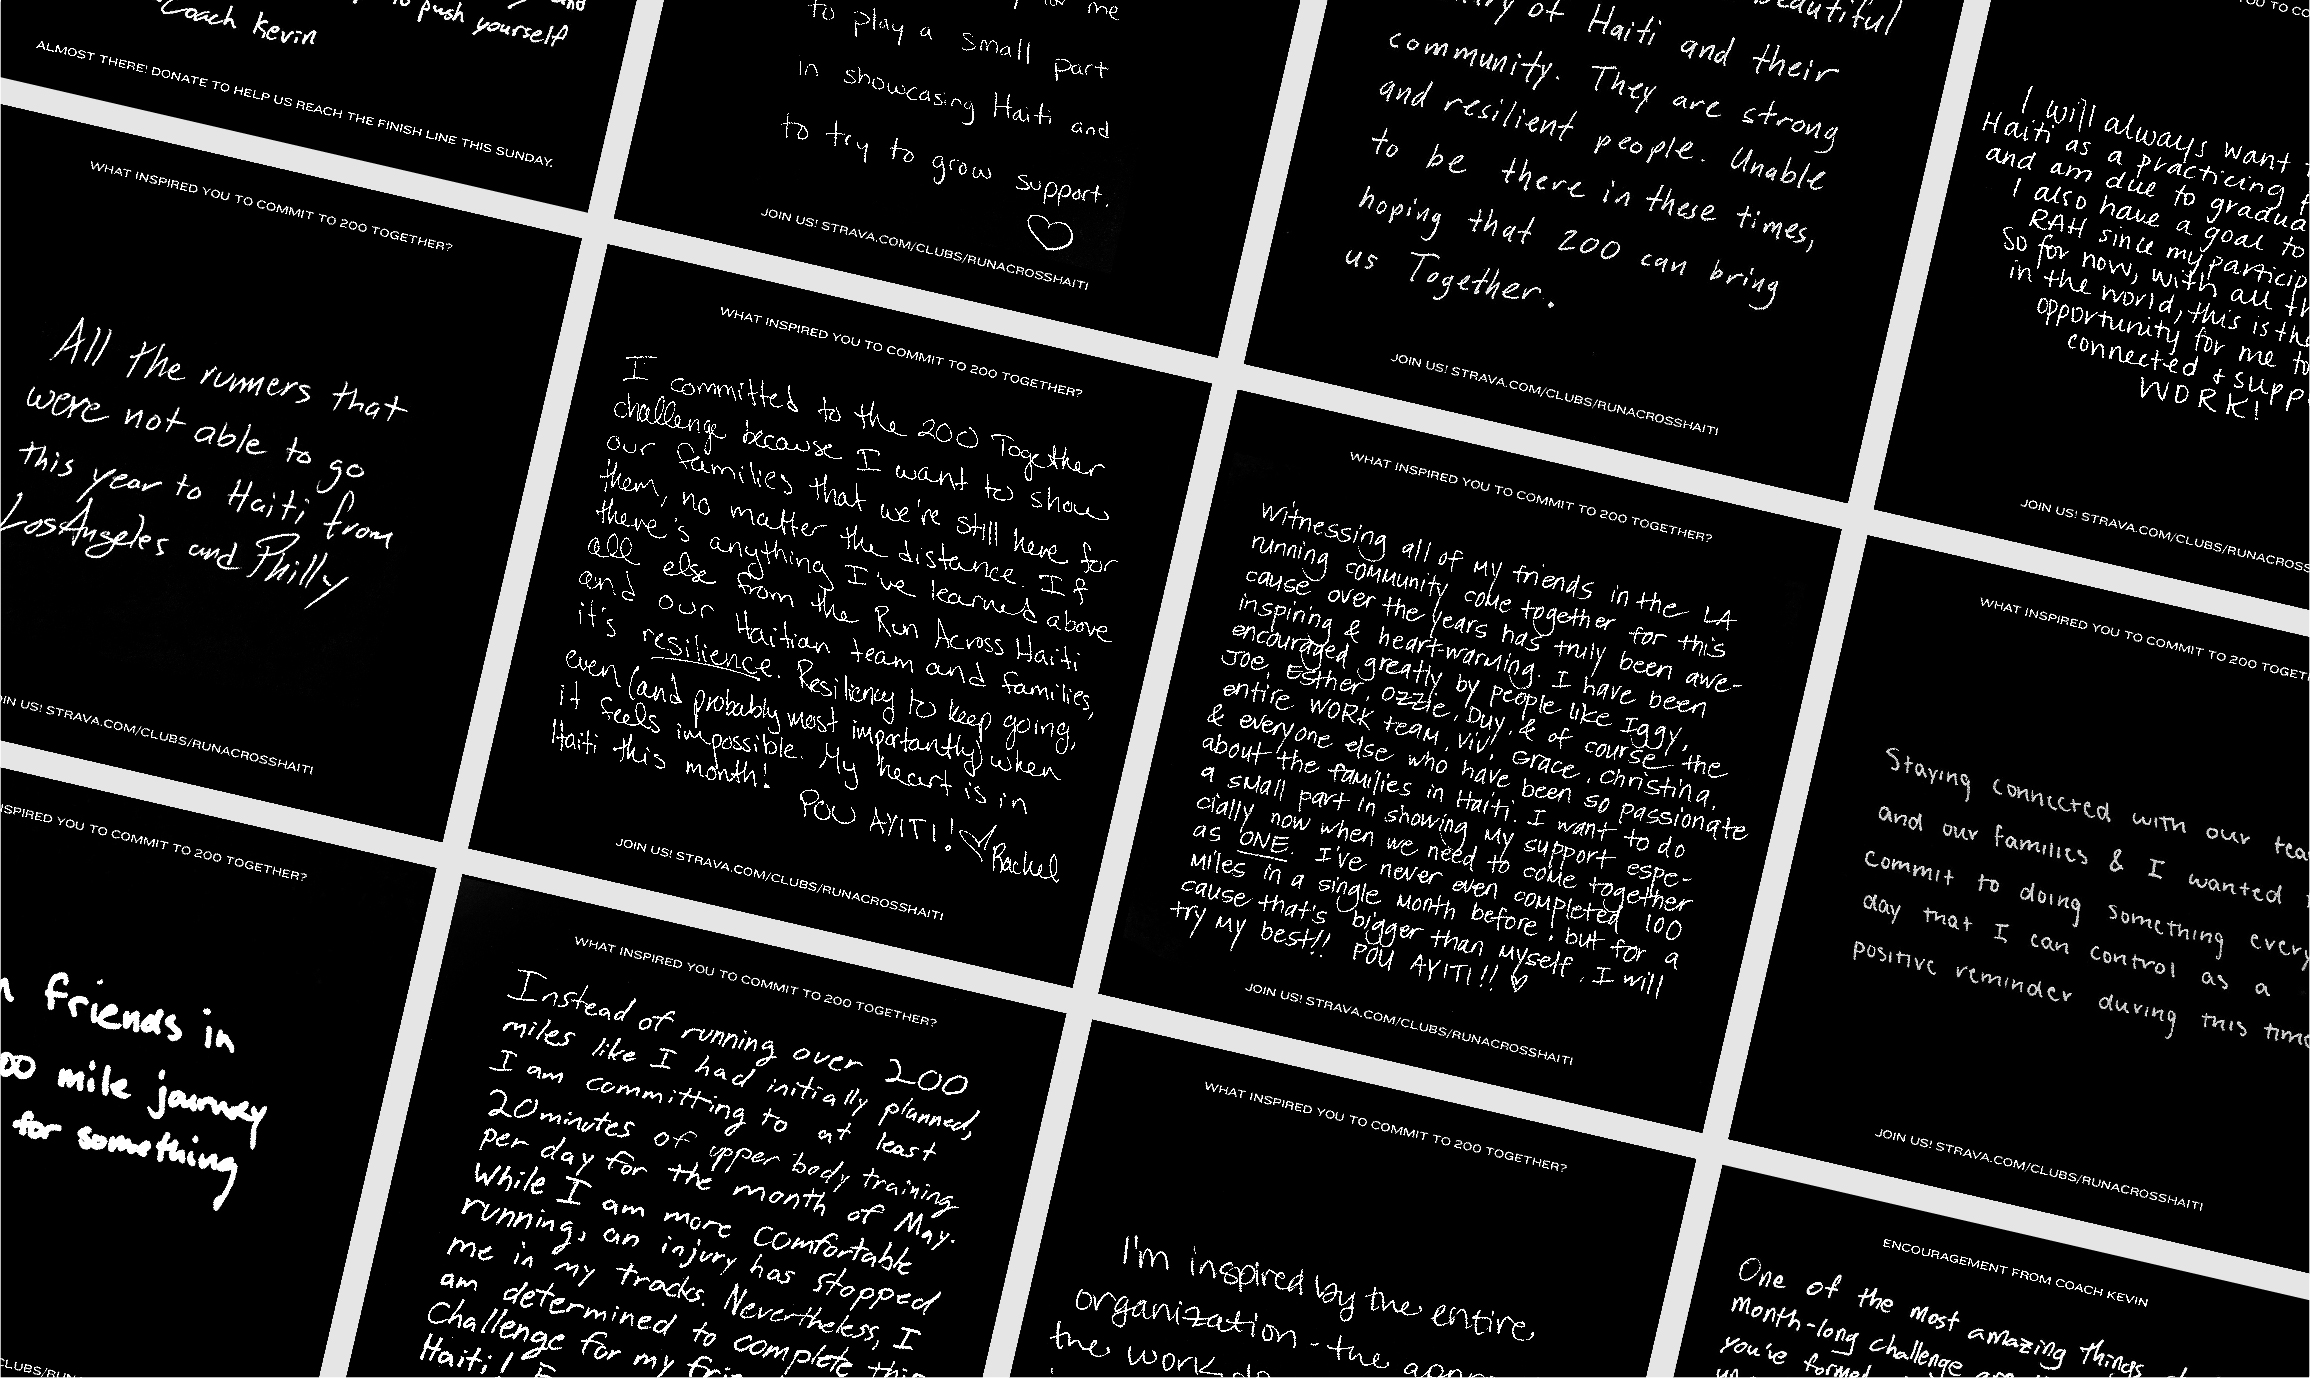 to push yourself
Coach Kevin
ALMOST THERE! DONATE TO HELP US REACH THE FINISH LINE THIS SUNDAY.
for me
to play a small part
in showcasing Haiti and
to try to grow support.
JOIN US! STRAVA.COM/CLUBS/RUNACROSSHAITI
beautiful
of Haiti and their
community. They are strong
and resilient people. Unable
to be there in these times,
hoping that 200 can bring
us Together.
JOIN US! STRAVA.COM/CLUBS/RUNACROSSHAITI
I will always want
Haiti as a practicing
and am due to
I also have a goal to
RAH since my
So for now, with all
in the world, this is the
opportunity for me to
connected &
WORK!
JOIN US! STRAVA.COM/CLUBS/
WHAT INSPIRED YOU TO COMMIT TO 200 TOGETHER?
All the runners that
were not able to go
this year to Haiti from
Los Angeles and Philly
US! STRAVA.COM/CLUBS/RUNACROSSHAITI
WHAT INSPIRED YOU TO COMMIT TO 200 TOGETHER?
I committed to the 200 Together
challenge because I want to show
our families that we're still here for
them, no matter the distance. If
there's anything I've learned above
all else from the Run Across Haiti
and our Haitian team and families,
it's resilience. Resiliency to keep going,
even (and probably most importantly) when
it feels impossible. My heart is in
Haiti this month!
POU AYITI! Rachel
JOIN US! STRAVA.COM/CLUBS/RUNACROSSHAITI
WHAT INSPIRED YOU TO COMMIT TO 200 TOGETHER?
Witnessing all of my friends in the LA
running community come together for this
cause over the years has truly been awe-
inspiring & heart-warming. I have been
encouraged greatly by people like Iggy,
Joe, Esther, Ozzie, Duy, & of course, the
entire WORK team, Vivi, Grace, Christina,
& everyone else who have been so passionate
about the families in Haiti. I want to do
a small part in showing my support espe-
cially now when we need to come together
as ONE. I've never even completed 100
miles in a single month before, but for a
cause that's bigger than myself, I will
try my best!! POU AYITI!!
JOIN US! STRAVA.COM/CLUBS/RUNACROSSHAITI
WHAT INSPIRED YOU TO COMMIT TO 200
Staying connected with our
and our families & I wanted
commit to doing something every
day that I can control as a
positive reminder during this
JOIN US! STRAVA.COM/CLUBS/RUNACROSSHAITI
YOU TO COMMIT TO 200 TOGETHER?
friends in
mile journey
for something
WHAT INSPIRED YOU TO COMMIT TO 200 TOGETHER?
Instead of running over 200
miles like I had initially planned,
I am committing to at least
20 minutes of upper body training
per day for the month of May.
While I am more comfortable
running, an injury has stopped
me in my tracks. Nevertheless, I
am determined to complete this
Challenge for my
Haiti!
WHAT INSPIRED YOU TO COMMIT TO 200 TOGETHER?
I'm inspired by the entire
organization - the
the work
ENCOURAGEMENT FROM COACH KEVIN
One of the most amazing things
month-long challenge
you've formed